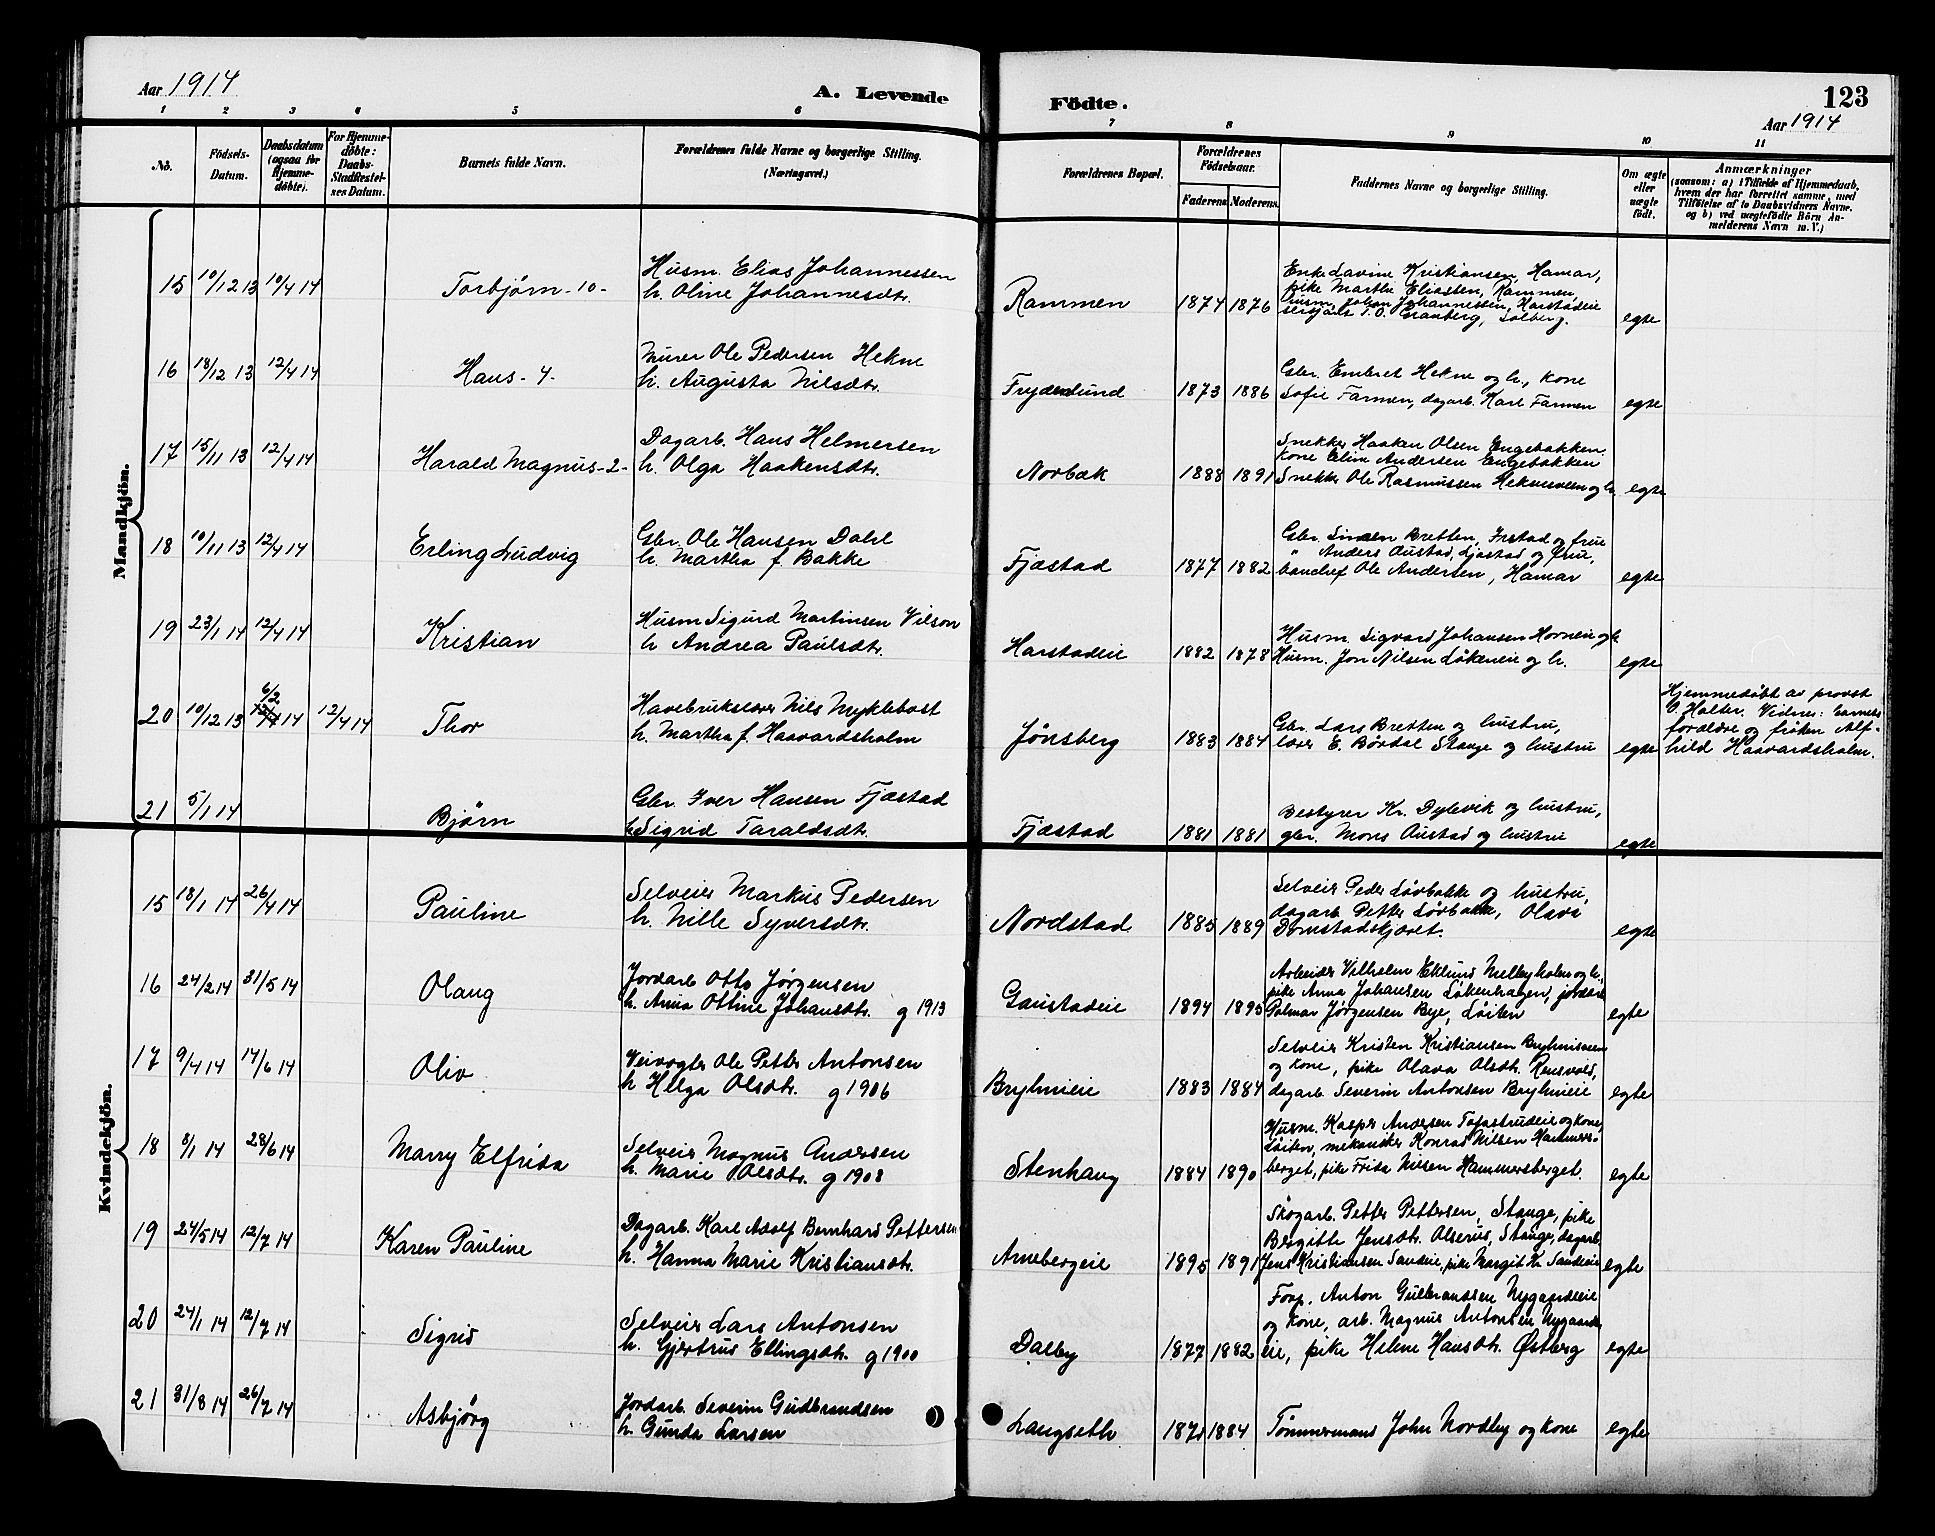 Aar 1914
A. Levende
Födte.
123
Aar 1914
1 2 3 4 5 6 7 8 9 10 11
No.
Födsels-
Datum.
Daabsdatum
(ogsaa for
Hjemme-
döbte).
For Hjemme-
döbte:
Daabs-
Stadfæstel-
ses Datum.
Barnets fulde Navn.
Forældrenes fulde Navne og borgerlige Stilling.
(Næringsvei.)
Forældrenes Bopæl.
Forældrenes
Födselsaar.
Faderens
Moderens.
Faddernes Navne og borgerlige Stilling.
Om ægte
eller
uægte
födt.
Anmærkninger
(saasom: a) i Tilfælde af Hjemmedaab,
hvem der har forrettet samme, med
Tilföielse af to Daabsvidners Navne,
og b) ved uægtefödte Börn An-
melderens Navn m. V.)
Mandkjön.
15 10/12 13 10/4 14 Torbjørn - 10 -
Husm. Elias Johannessen
h. Oline Johannesdtr.
Rammen 1874 1876
Enke Lavine Kristiansen, Hamar,
pike Marthe Eliassen, Rammen,
husm. Johan Johannessen, Harstadeie
T. O. Granberg, Solberg.
egte
16 18/12 13 12/4 14 Hans - 4 -
Murer Ole Pedersen Hekne
h. Augusta Nilsdtr.
Frydenlund 1873 1886
Gbr. Embret Hekne og h., kone
Sofie Farmen, dagarb. Karl Farmen
egte
17 15/11 13 12/4 14 Harald Magnus - 2 -
Dagarb. Hans Helmersen
h. Olga Haakensdtr.
Norbæk 1888 1891
Snekker Haaken Olsen Engebakken
kone Eline Andersen Engebakken
Snekker Ole Rasmussen Heknesveen og h.
egte
18 10/11 13 12/4 14 Erling Ludvig
Gbr. Ole Hansen Dahl
h. Martha f. Bakke
Fjæstad 1877 1882
Gbr. Simen Bretten, Frstad og frue
" Anders Austad, Ljøstad og frue,
Ole Andersen, Hamar
egte
19 23/1 14 12/4 14 Kristian
Husm Sigurd Martinsen Vilson
h Andrea Paulsdtr.
Harstadeie 1882 1878
Husm. Sigvard Johansen Horneie og h.
Husm. Jon Nilsen Løkeneie og h.
egte
20 10/12 13 6/2 14 12/4 14 Thor
Havebrukslærer Nils Myklebost
h. Martha f. Haavardsholm
Jønsberg 1883 1884
Gbr. Lars Bretten og hustru,
lærer E. Børdal Stange og hustru
egte
Hjemmedøbt av provst
O. Halter. Vidner: barnets
forældre og frøken Alf-
hild Haavardsholm.
21 5/1 14 Bjørn
Gbr. Iver Hansen Fjæstad
h Sigrid Taraldsdtr.
Fjæstad 1881 1881
Bestyrer Kr. Dylevik og hustru,
gbr. Mons Austad og hustru
egte
Kvindekjön.
15 18/1 14 26/4 14 Pauline
Selveier Markus Pedersen
h. Nille Syversdtr.
Nordstad 1885 1889
Selveier Peder Løvbakke og hustru,
dagarb. Petter Løvbakke, Olava
Domstadskjæret.
egte
16 24/2 14 31/5 14 Olaug
Jordarb Otto Jørgensen
h. Anna Ottine Johansdtr. g 1913
Gaustadeie 1894 1895
Arbeider Vilhelm Eklund Melbyholm og h.,
pike Anna Johansen Løkenhagen, jordarb.
Palmar Jørgensen Bye, Løiten
egte
17 9/4 14 14/6 14 Oliv
Veivogter Ole Petter Antonsen
h Helga Olsdtr. g 1906
Brylinieie 1883 1884
Selveier Kristen Kristiansen Brylinisveen
og kone, pike Olava Olsdtr. Rensvold,
dagarb. Severin Antonsen Brylinieie
egte
18 8/1 14 28/6 14 Marry Elfrida
Selveier Magnus Andersen
h. Marie Olsdtr. g 1908
Stenhaug 1884 1890
Husm. Kasper Andersen Tofastrudeie og kone,
Løiten, mekaniker Konrad Nilsen Hammers-
berget, pike Frida Nilsen Hammersberget.
egte
19 24/5 14 12/7 14 Karen Pauline
Dagarb. Karl Adolf Bernhard Pettersen
h. Hanna Marie Kristiansdtr.
Arnebergeie 1895 1891
Skogarb. Petter Pettersen, Stange, pike
Birgitte Jensdtr. Olserud, Stange, dagarb.
Jens Kristiansen Sandeie, pike Margit Kr. Sandeie
egte
20 24/1 14 12/7 14 Sigrid
Selveier Lars Antonsen
h. Gjertrud Ellingsdtr. g 1900
Dalby 1877 1882
Forp. Anton Gulbranssen Nygaardseie
og kone, arb. Magnus Antonsen Nygaards-
eie, pike Helene Hansdtr. Østberg
egte
21 31/8 14 26/7 14 Asbjørg
Jordarb Severin Gudbrandsen
h. Gunda Larsen
Langseth 1871 1884
Tømmermand John Nordby og kone
egte